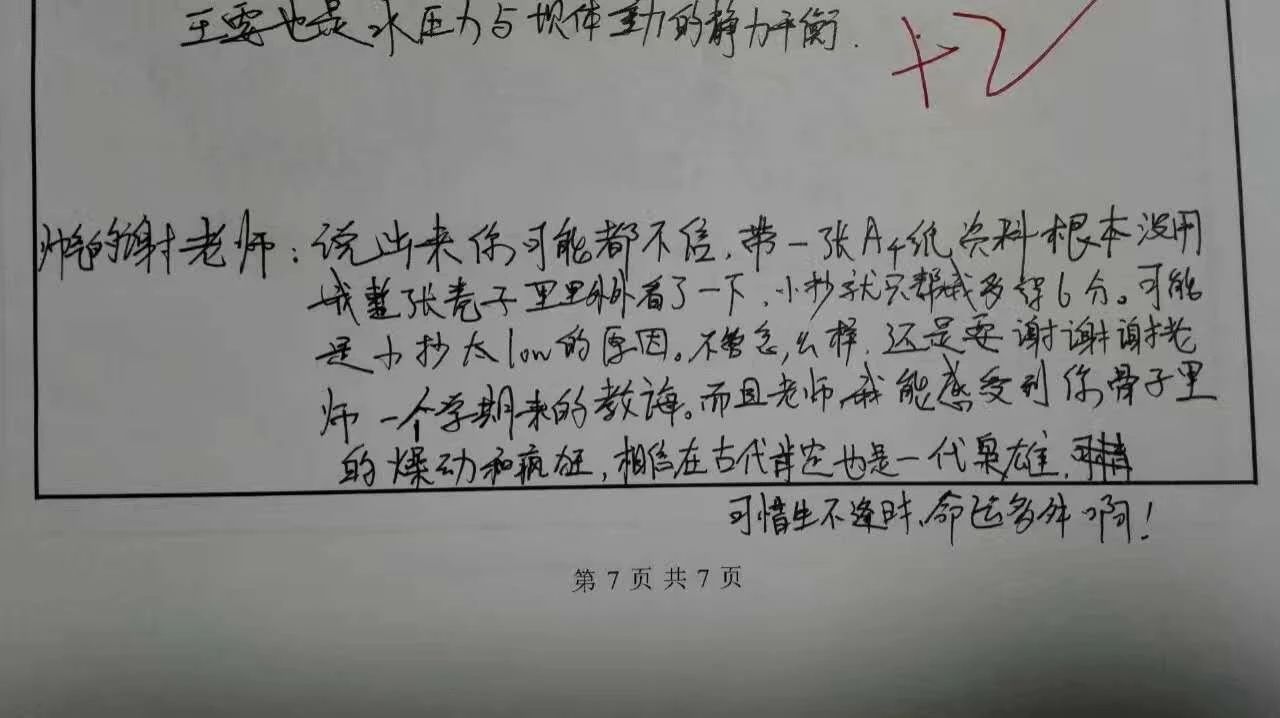 主要也是水压力与坝体重力的静力平衡.
+2
帅气的谢老师：说出来你可能都不信，带一张A4纸资料根本没用
我整张卷子里里外外看了一下，小抄就只帮我多得6分。可能
是小抄太low的原因。不管怎么样，还是要谢谢谢老
师一个学期来的教诲。而且老师，我能感受到你骨子里
的燥动和疯狂，相信在古代肯定也是一代枭雄，可惜
可惜生不逢时、命运多舛啊！
第 7 页 共 7 页